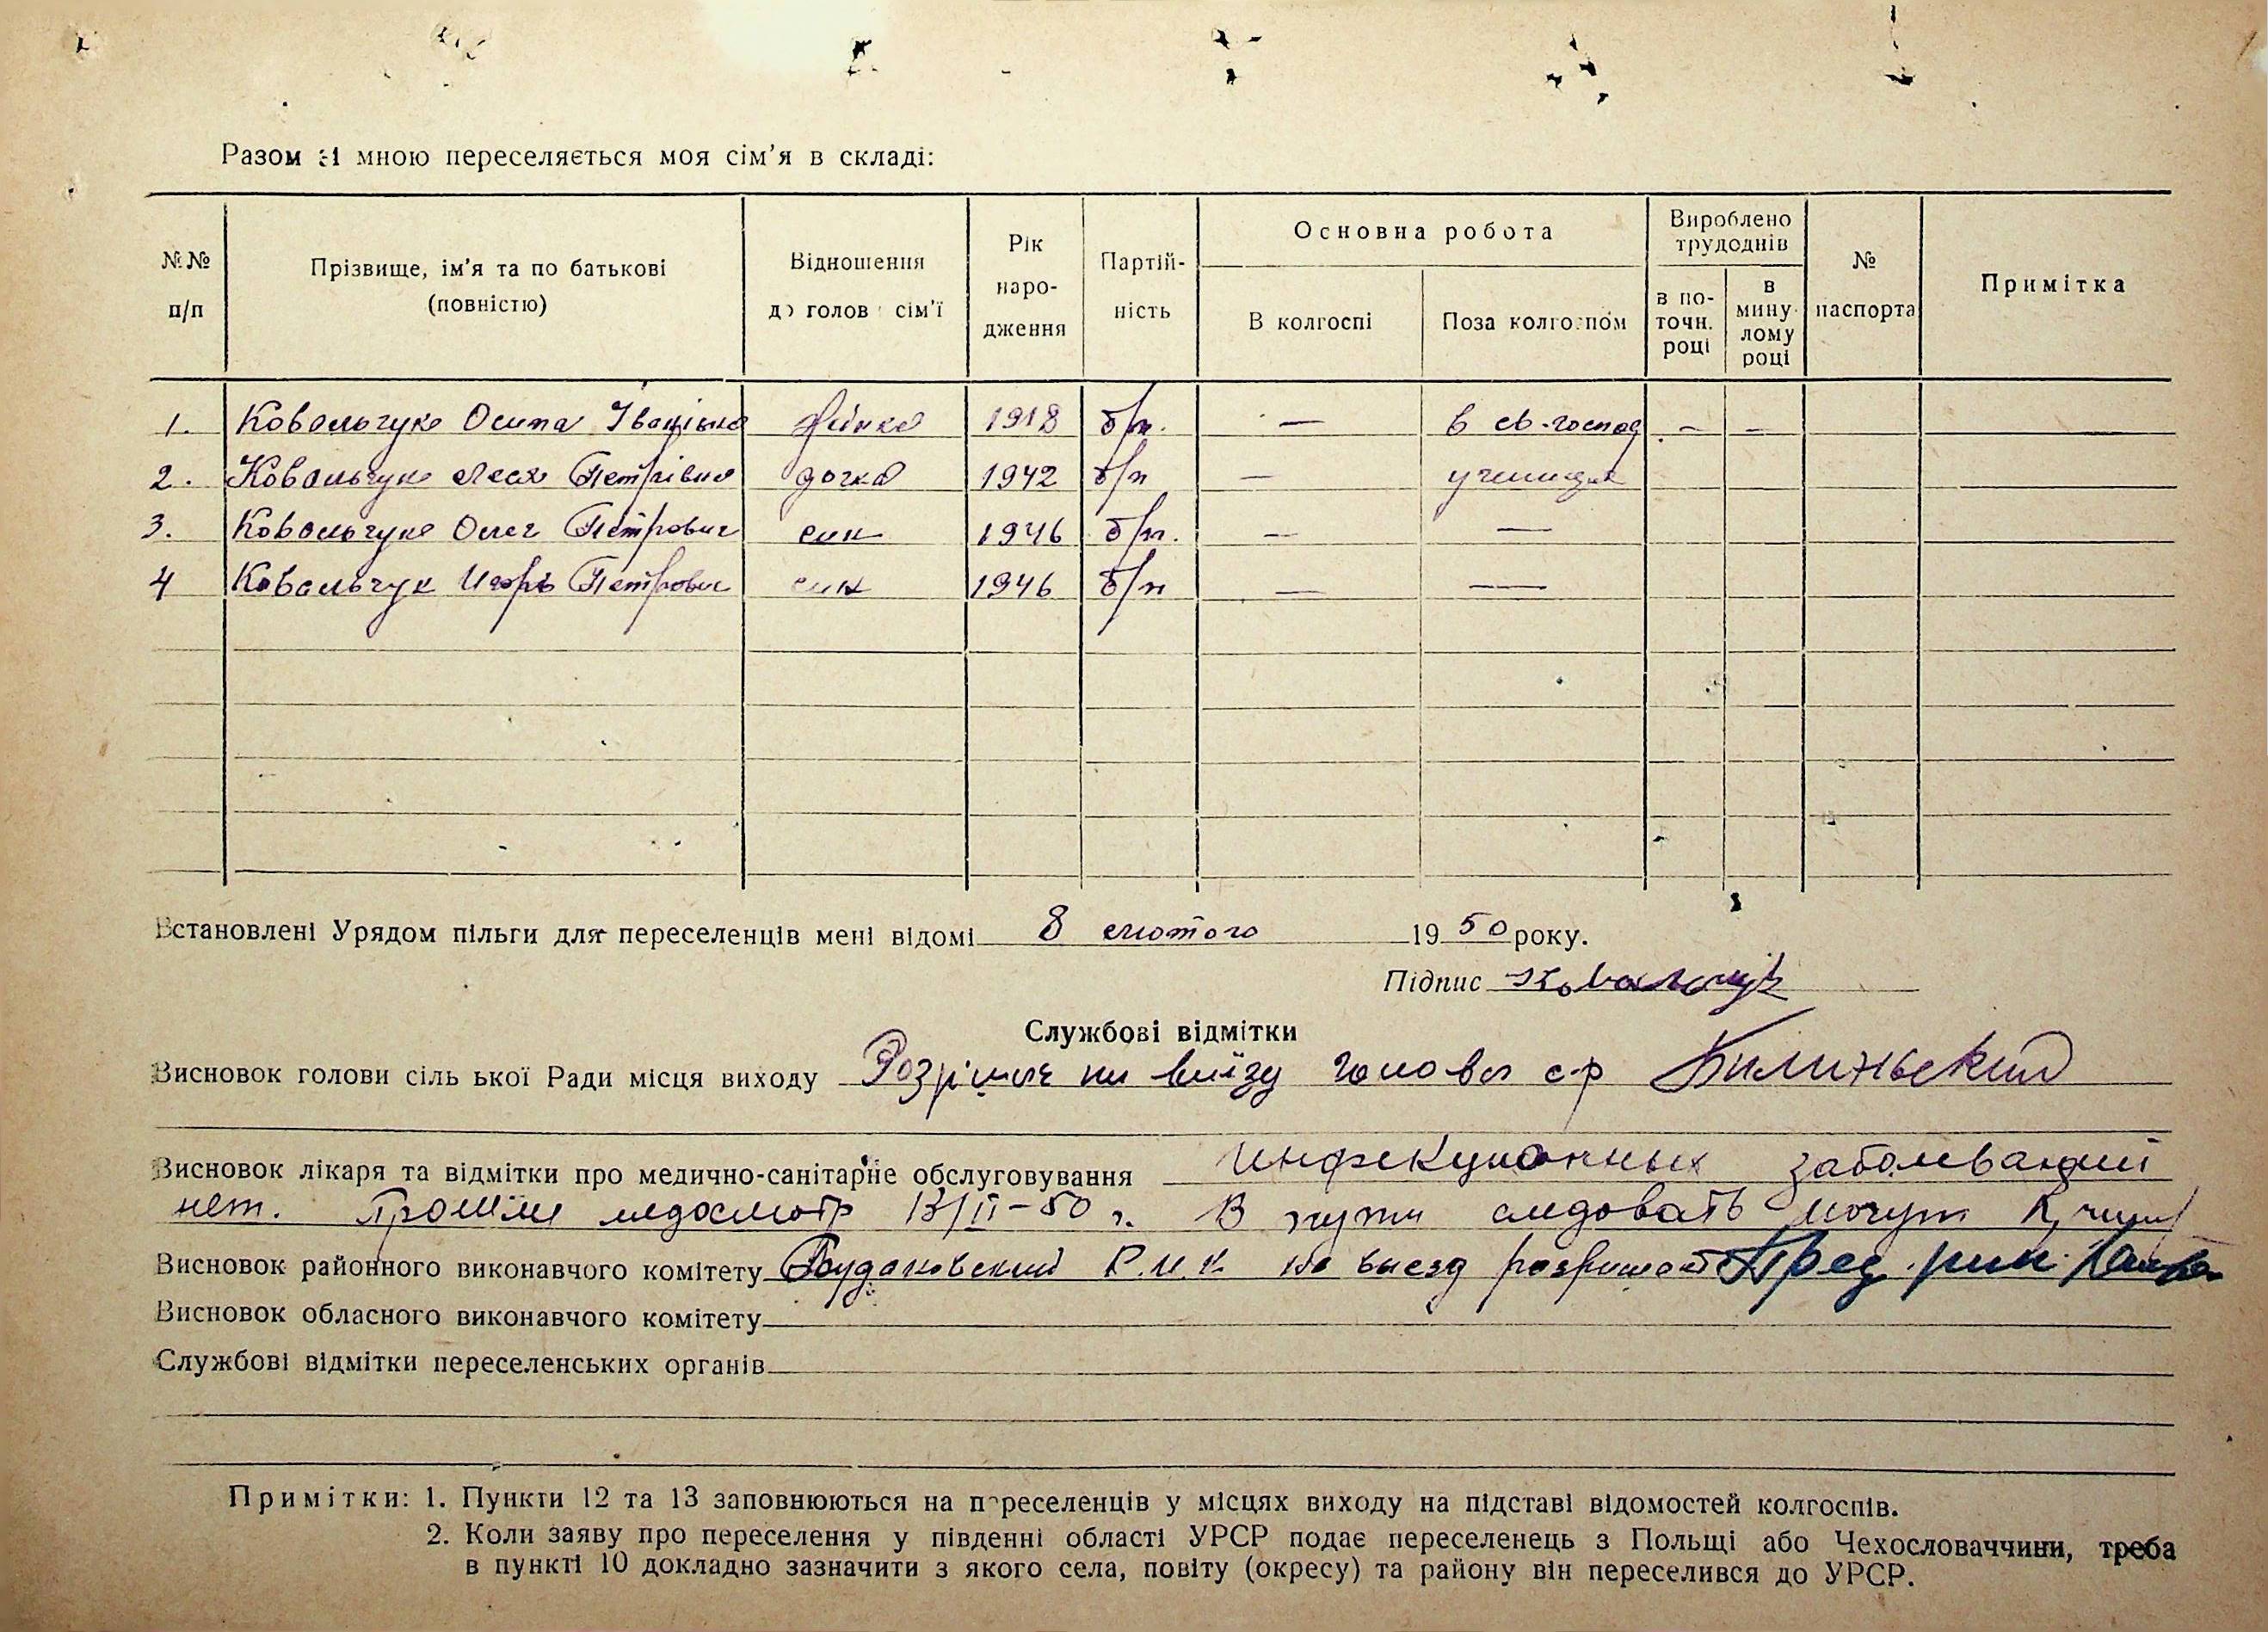 Разом зі мною переселяється моя сім'я в складі:
№№ п/п
Прізвище, ім'я та по батькові (повністю)
Відношення до голов сім'ї
Рік народження
Партійність
Основна робота
В колгоспі
Поза колгоспом
Вироблено трудоднів
в поточн. році
в минулому році
№ паспорта
Примітка
1. Ковальчук Осипа Іванівна жінка 1918 б/п. — в св.-господ. — —
2. Ковальчук Леся Петрівна дочка 1942 б/п — учениця
3. Ковальчук Олег Петрович син 1946 б/п. — —
4 Ковальчук Игорь Петрович син 1946 б/п — —
Встановлені Урядом пільги для переселенців мені відомі 8 лютого 1950 року.
Підпис Ковальчук
Службові відмітки
Висновок голови сільської Ради місця виходу на виїзд голова с-р Билиньский
Висновок лікаря та відмітки про медично-санітарне обслуговування Инфекционных заболеваний
нет. Прошли медосмотр 13/II-50 г. В пути следовать могут
Висновок районного виконавчого комітету Р.И.К. на выезд разрешает Пред. рик.
Висновок обласного виконавчого комітету
Службові відмітки переселенських органів
Примітки: 1. Пункти 12 та 13 заповнюються на переселенців у місцях виходу на підставі відомостей колгоспів.
2. Коли заяву про переселення у південні області УРСР подає переселенець з Польщі або Чехословаччини, треба
в пункті 10 докладно зазначити з якого села, повіту (окресу) та району він переселився до УРСР.